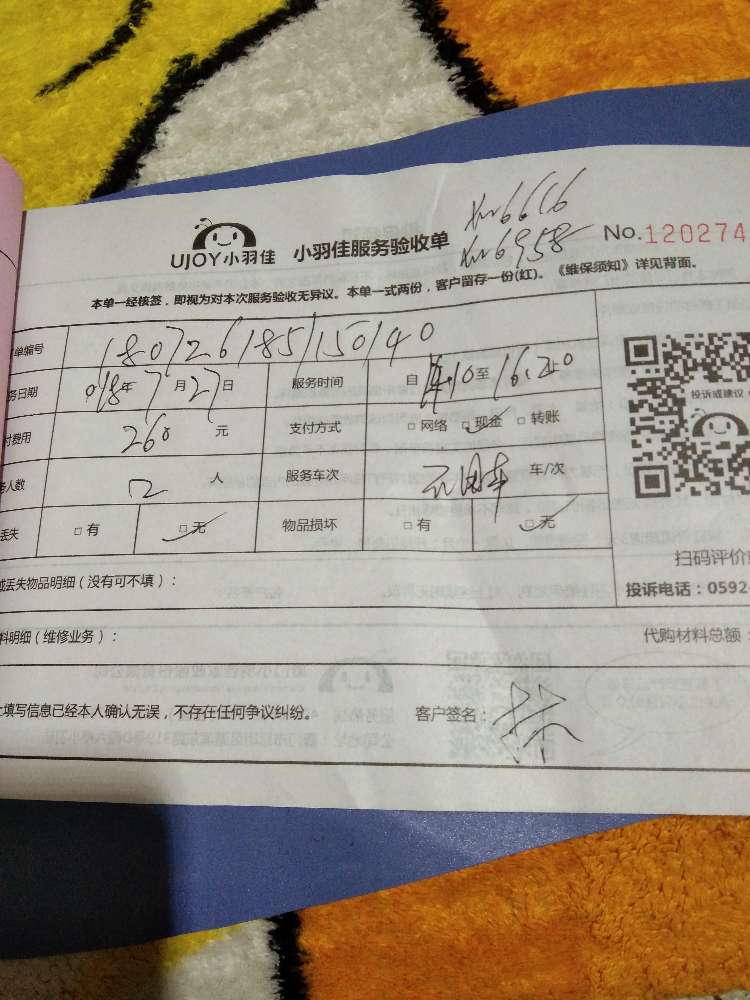 UJOY小羽佳 小羽佳服务验收单 No.120274
xm6616
xm6958
本单一经核签,即视为对本次服务验收无异议。本单一式两份,客户留存一份(红)。《维保须知》详见背面。
单编号 180726185115040
务日期 018年7月27日 服务时间 自14.10至16.20
付费用 260元 支付方式 □网络 □现金 □转账
人数 2人 服务车次 车/次
丢失 □有 □无 物品损坏 □有 □无
投诉或建议
扫码评价
丢失物品明细(没有可不填):
投诉电话:0592-
料明细(维修业务): 代购材料总额:
填写信息已经本人确认无误,不存在任何争议纠纷。 客户签名:林